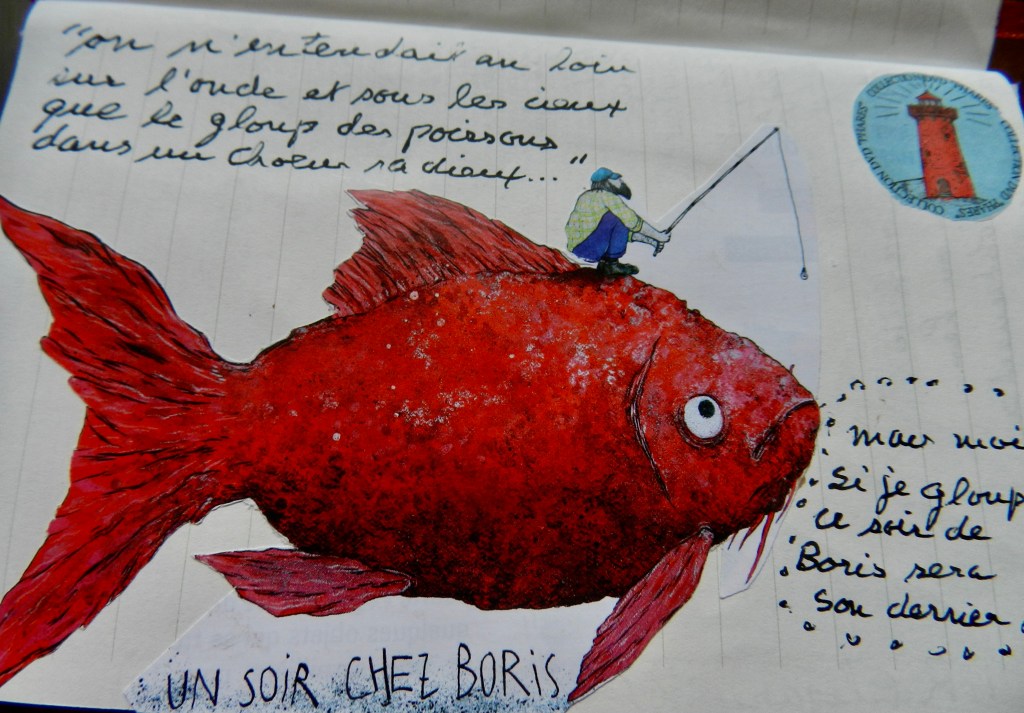 "on n'entendait au loin
sur l'onde et sous les cieux
que le gloup des poissons
dans un choeur radieux..."
COLLECTION DVD PHARES
mais moi
si je gloup
ce soir de
Boris sera
son dernier
UN SOIR CHEZ BORIS